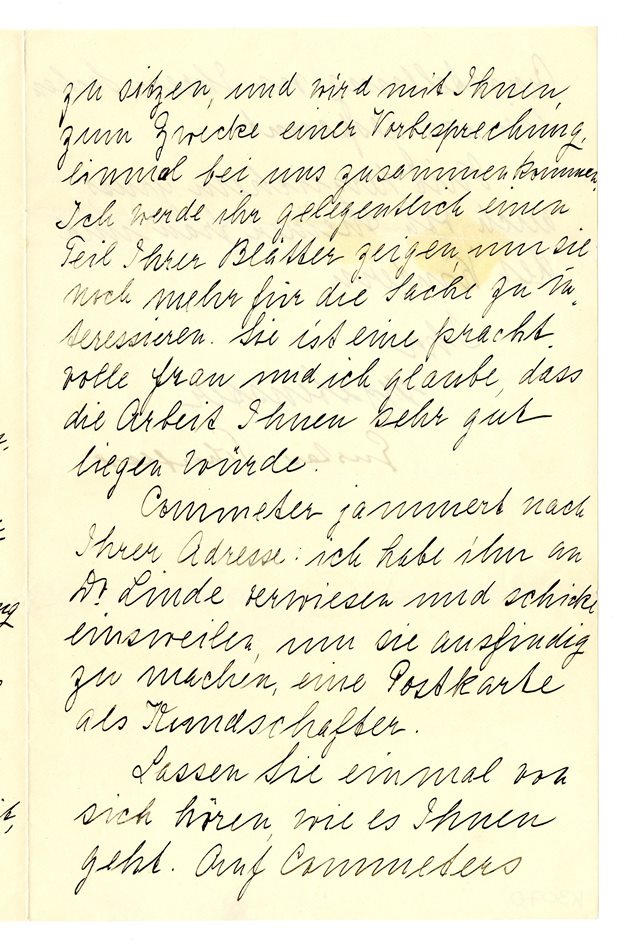 zu sitzen, und wird mit Ihnen,
zum Zwecke einer Vorbesprechung,
einmal bei uns zusammenkommen.
Ich werde ihr gelegentlich einen
Teil Ihrer Blätter zeigen, um sie
noch mehr für die Sache zu in-
teressieren. Sie ist eine pracht-
volle Frau und ich glaube, dass
die Arbeit Ihnen sehr gut
liegen würde.
Commeter jammert nach
Ihrer Adresse: ich habe ihn an
Dr. Linde verwiesen und schicke
einsweilen, um sie ausfindig
zu machen, eine Postkarte
als Kundschafter.
Lassen Sie einmal von
sich hören, wie es Ihnen
geht. Auf Commeters